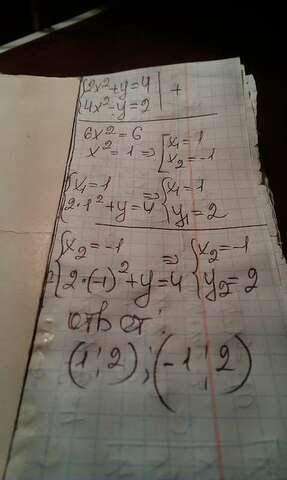 {2x²+y=4 | +
{4x²-y=2
6x²=6
x²=1 ⇒ [x₁=1
[x₂=-1
{x₁=1 ⇒ {x₁=1
{2·1²+y=4 {y₁=2
{x₂=-1 ⇒ {x₂=-1
{2·(-1)²+y=4 {y₂=2
ответ:
(1;2); (-1;2)